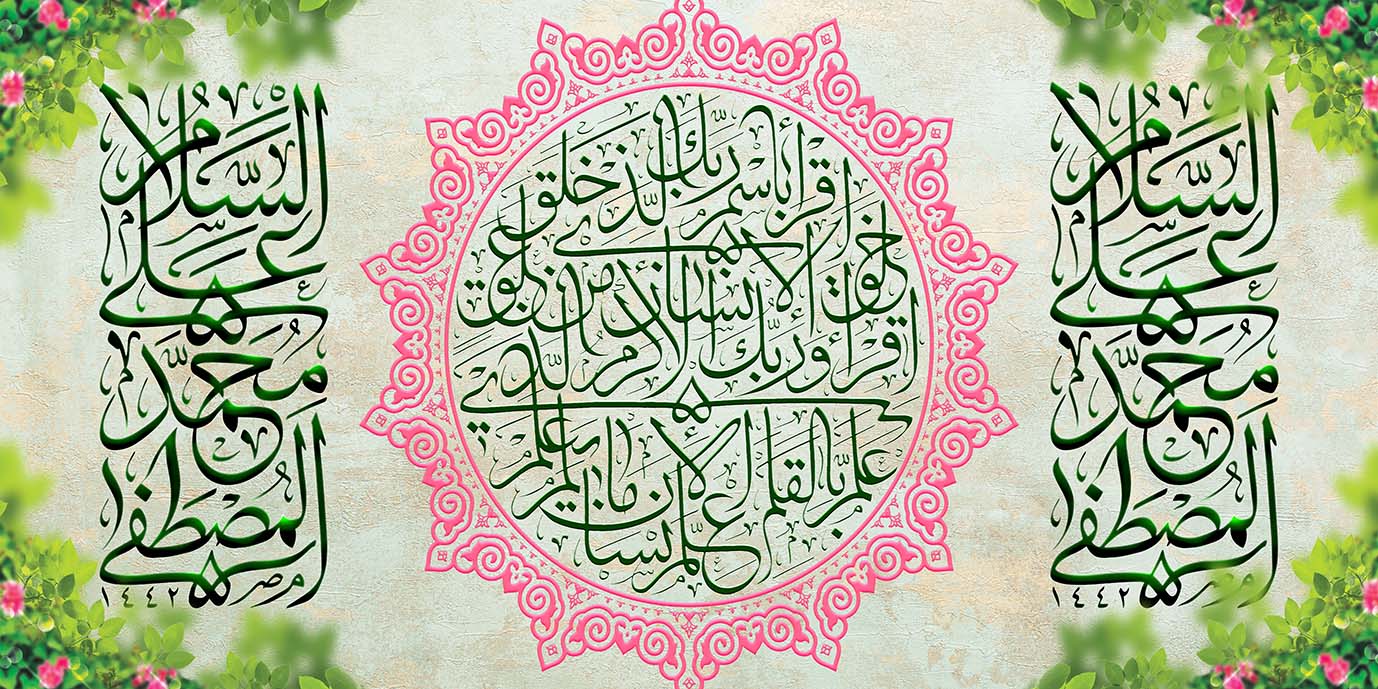 السلام
علی
محمد
المصطفی
١٤٤٢
اقرأ باسم ربك الذي خلق
خلق الإنسان من علق
اقرأ وربك الأكرم الذي
علم بالقلم علم الإنسان ما لم يعلم
السلام
علی
محمد
المصطفی
١٤٤٢